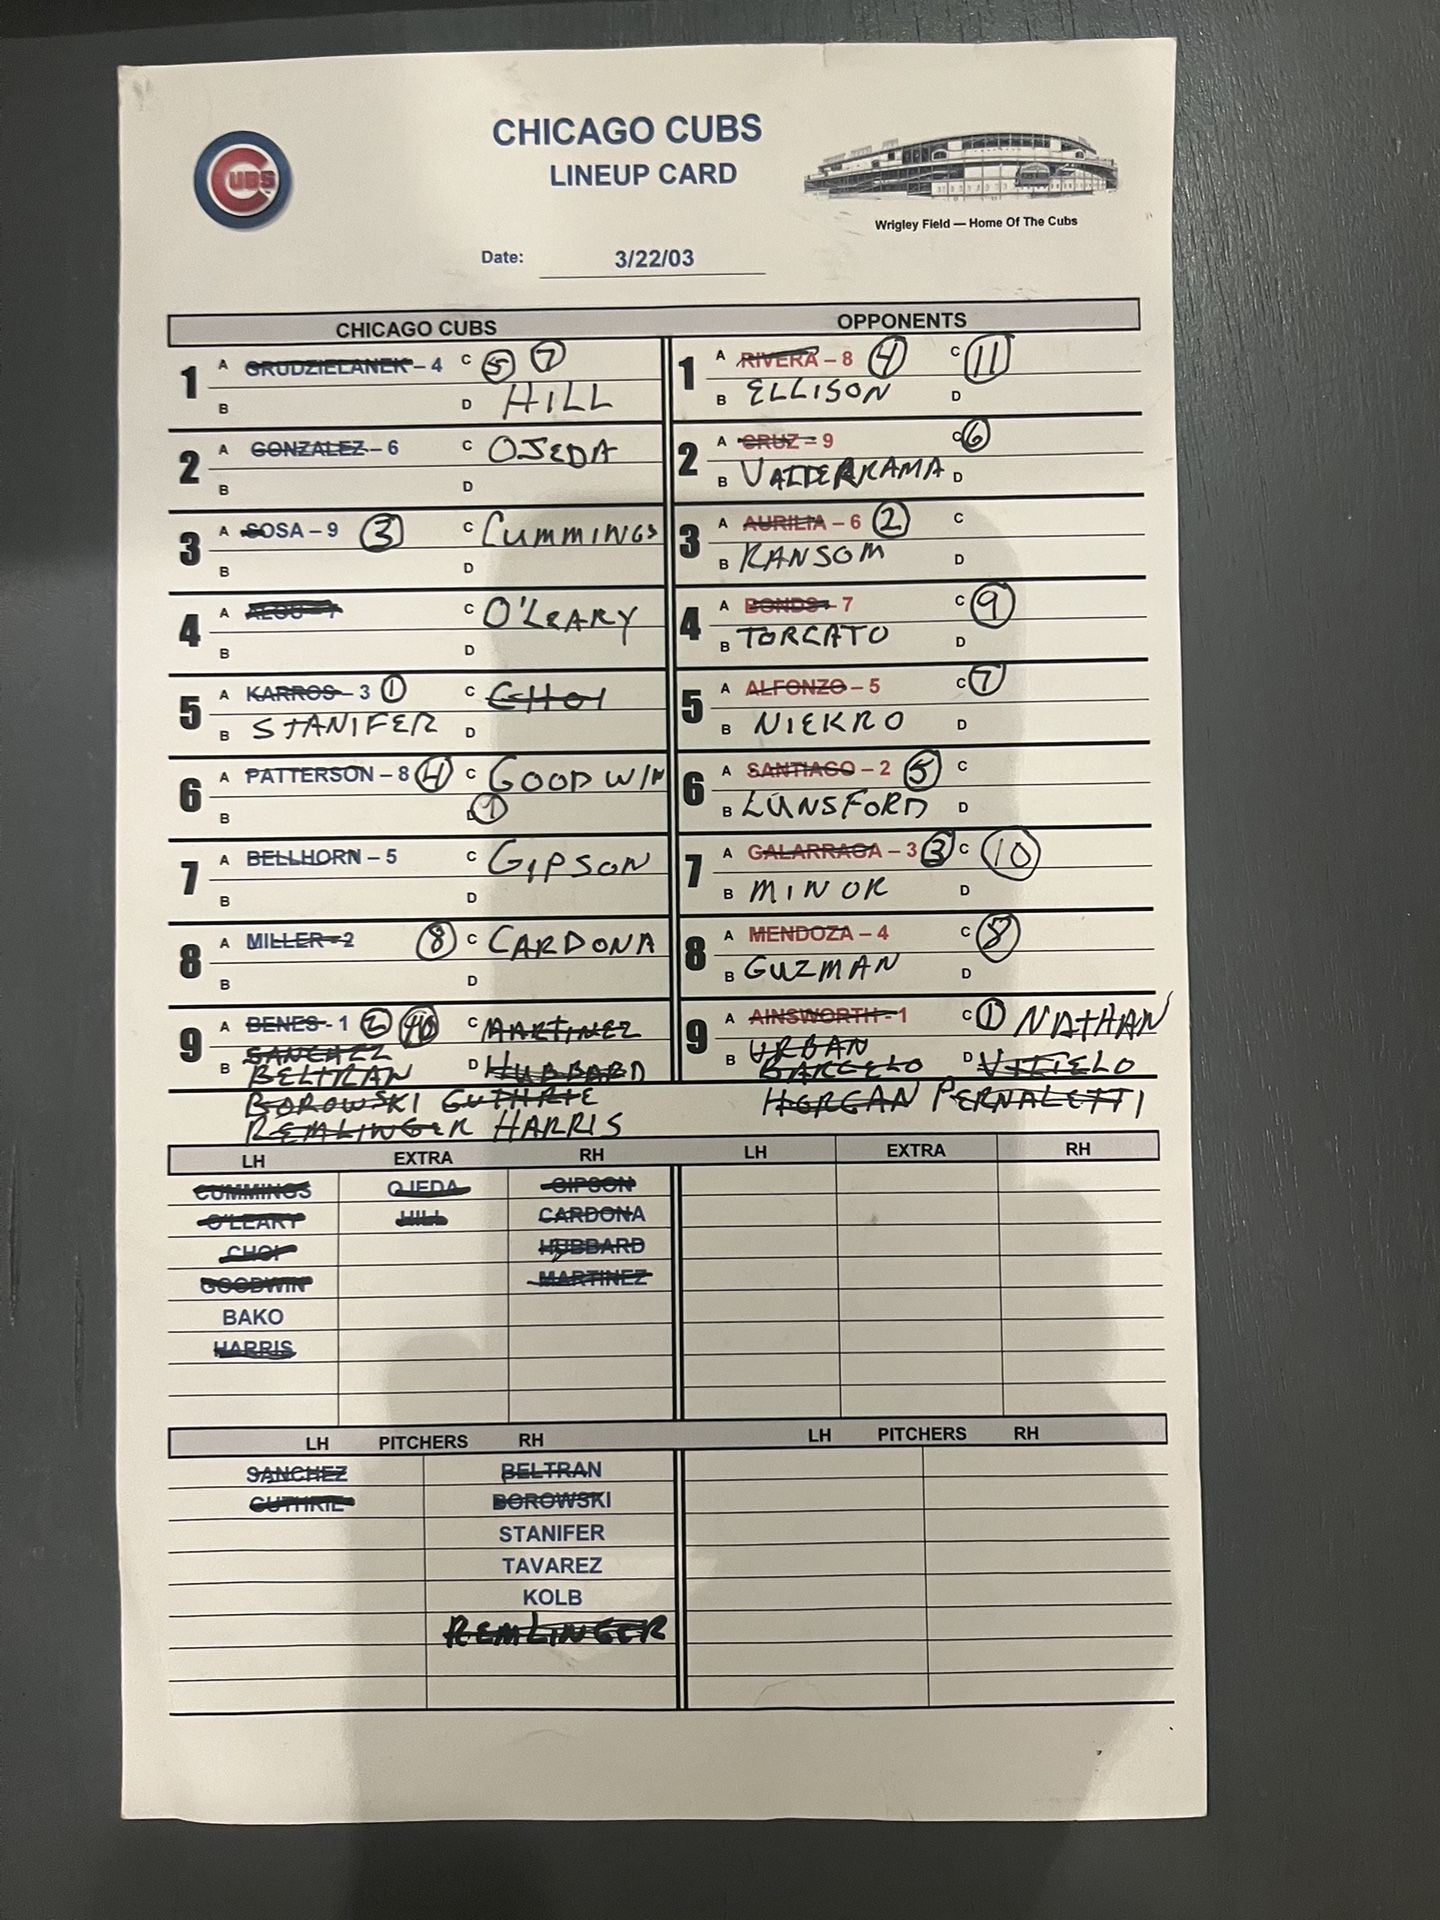 CHICAGO CUBS
LINEUP CARD
CUBS
Wrigley Field — Home Of The Cubs
Date: 3/22/03
CHICAGO CUBS OPPONENTS
1 A GRUDZIELANEK – 4 C 5 7
B D HILL
2 A GONZALEZ – 6 C OJEDA
B D
3 A SOSA – 9 3 C CUMMINGS
B D
4 A ALOU – 7 C O'LEARY
B D
5 A KARROS – 3 1 C CHOI
B STANIFER D
6 A PATTERSON – 8 4 C GOODWIN
B D 1
7 A BELLHORN – 5 C GIPSON
B D
8 A MILLER – 2 8 C CARDONA
B D
9 A BENES - 1 2 C MARTINEZ
SANCHEZ
B BELTRAN D HUBBARD
BOROWSKI GUTHRIE
REMLINGER HARRIS
1 A RIVERA – 8 4 C 11
B ELLISON D
2 A CRUZ – 9 C 6
B VALDERRAMA D
3 A AURILIA – 6 2 C
B RANSOM D
4 A BONDS – 7 C 9
B TORCATO D
5 A ALFONZO – 5 C 7
B NIEKRO D
6 A SANTIAGO – 2 5 C
B LUNSFORD D
7 A GALARRAGA – 3 3 C 10
B MINOR D
8 A MENDOZA – 4 C 8
B GUZMAN D
9 A AINSWORTH - 1 C 1 NATHAN
URBAN
B D VITIELO
PERNALETTI
LH EXTRA RH LH EXTRA RH
CUMMINGS OJEDA GIPSON
O'LEARY HILL CARDONA
CHOI HUBBARD
GOODWIN MARTINEZ
BAKO
HARRIS
LH PITCHERS RH LH PITCHERS RH
SANCHEZ BELTRAN
GUTHRIE BOROWSKI
STANIFER
TAVAREZ
KOLB
REMLINGER